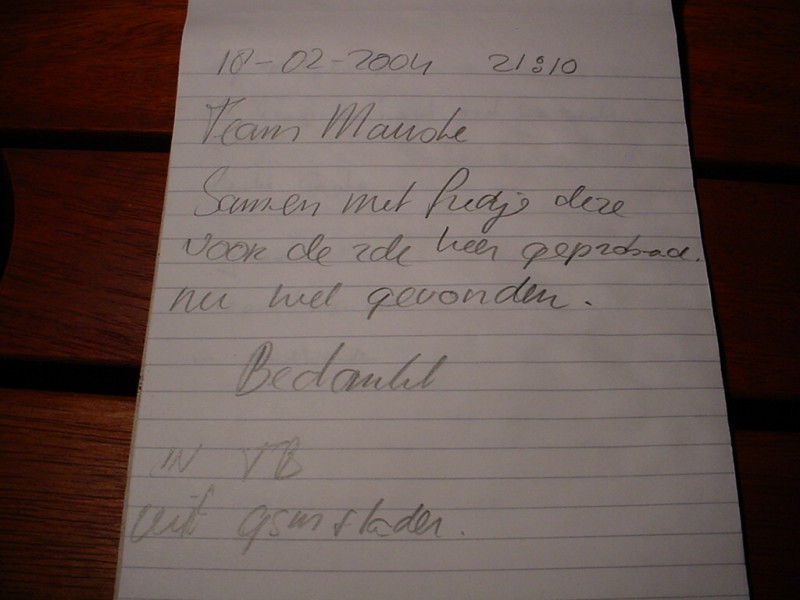 18-02-2004 21:10
Team
Samen met deze
voor de 2de keer geprobeerd.
nu wel gevonden.
Bedankt
IN TB
uit gsm + lader.